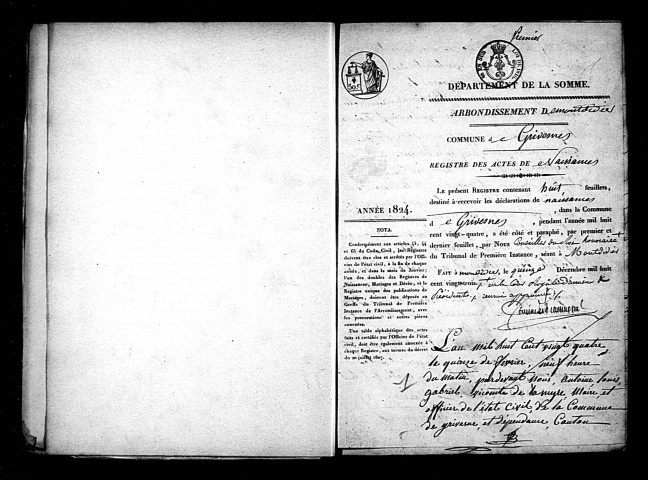 Premier
DÉPARTEMENT DE LA SOMME.
ARRONDISSEMENT De montdidier
COMMUNE de Grivesnes
REGISTRE DES ACTES DE Naissances
Le présent REGISTRE contenant huit feuillets,
destiné à recevoir les déclarations de naissances
, dans la Commune
de Grivesnes, pendant l'année mil huit
cent vingt-quatre, a été coté et paraphé, par premier et
dernier feuillet, par Nous Conseiller honoraire
du Tribunal de Première Instance, séant à Montdidier
FAIT à montdidier, le quinze Décembre mil huit
cent vingt-trois
Président
ANNÉE 1824.
NOTA.
Conformément aux articles 43, 44
et 63 du Code Civil, les Registres
doivent être clos et arrêtés par l'Of-
ficier de l'état civil, à la fin de chaque
année, et dans le mois de Janvier;
l'un des doubles des Registres de
Naissances, Mariages et Décès, et le
Registre unique des publications de
Mariages, doivent être déposés au
Greffe du Tribunal de Première
Instance de l'Arrondissement, avec
les procurations et autres pièces
annexées.
Une table alphabétique des actes
faite et certifiée par l'Officier de l'état
civil, doit être également annexée à
chaque Registre, aux termes du décret
du 20 juillet 1807.
1
L'an mil huit Cent vingt quatre
le quinze de février, neuf heure
du Matin, pardevant Nous, antoine louis
gabriel, vicomte de lamyre Maire et
officier de l'état Civil de la Commune
de grivesne, et dépendance, Canton